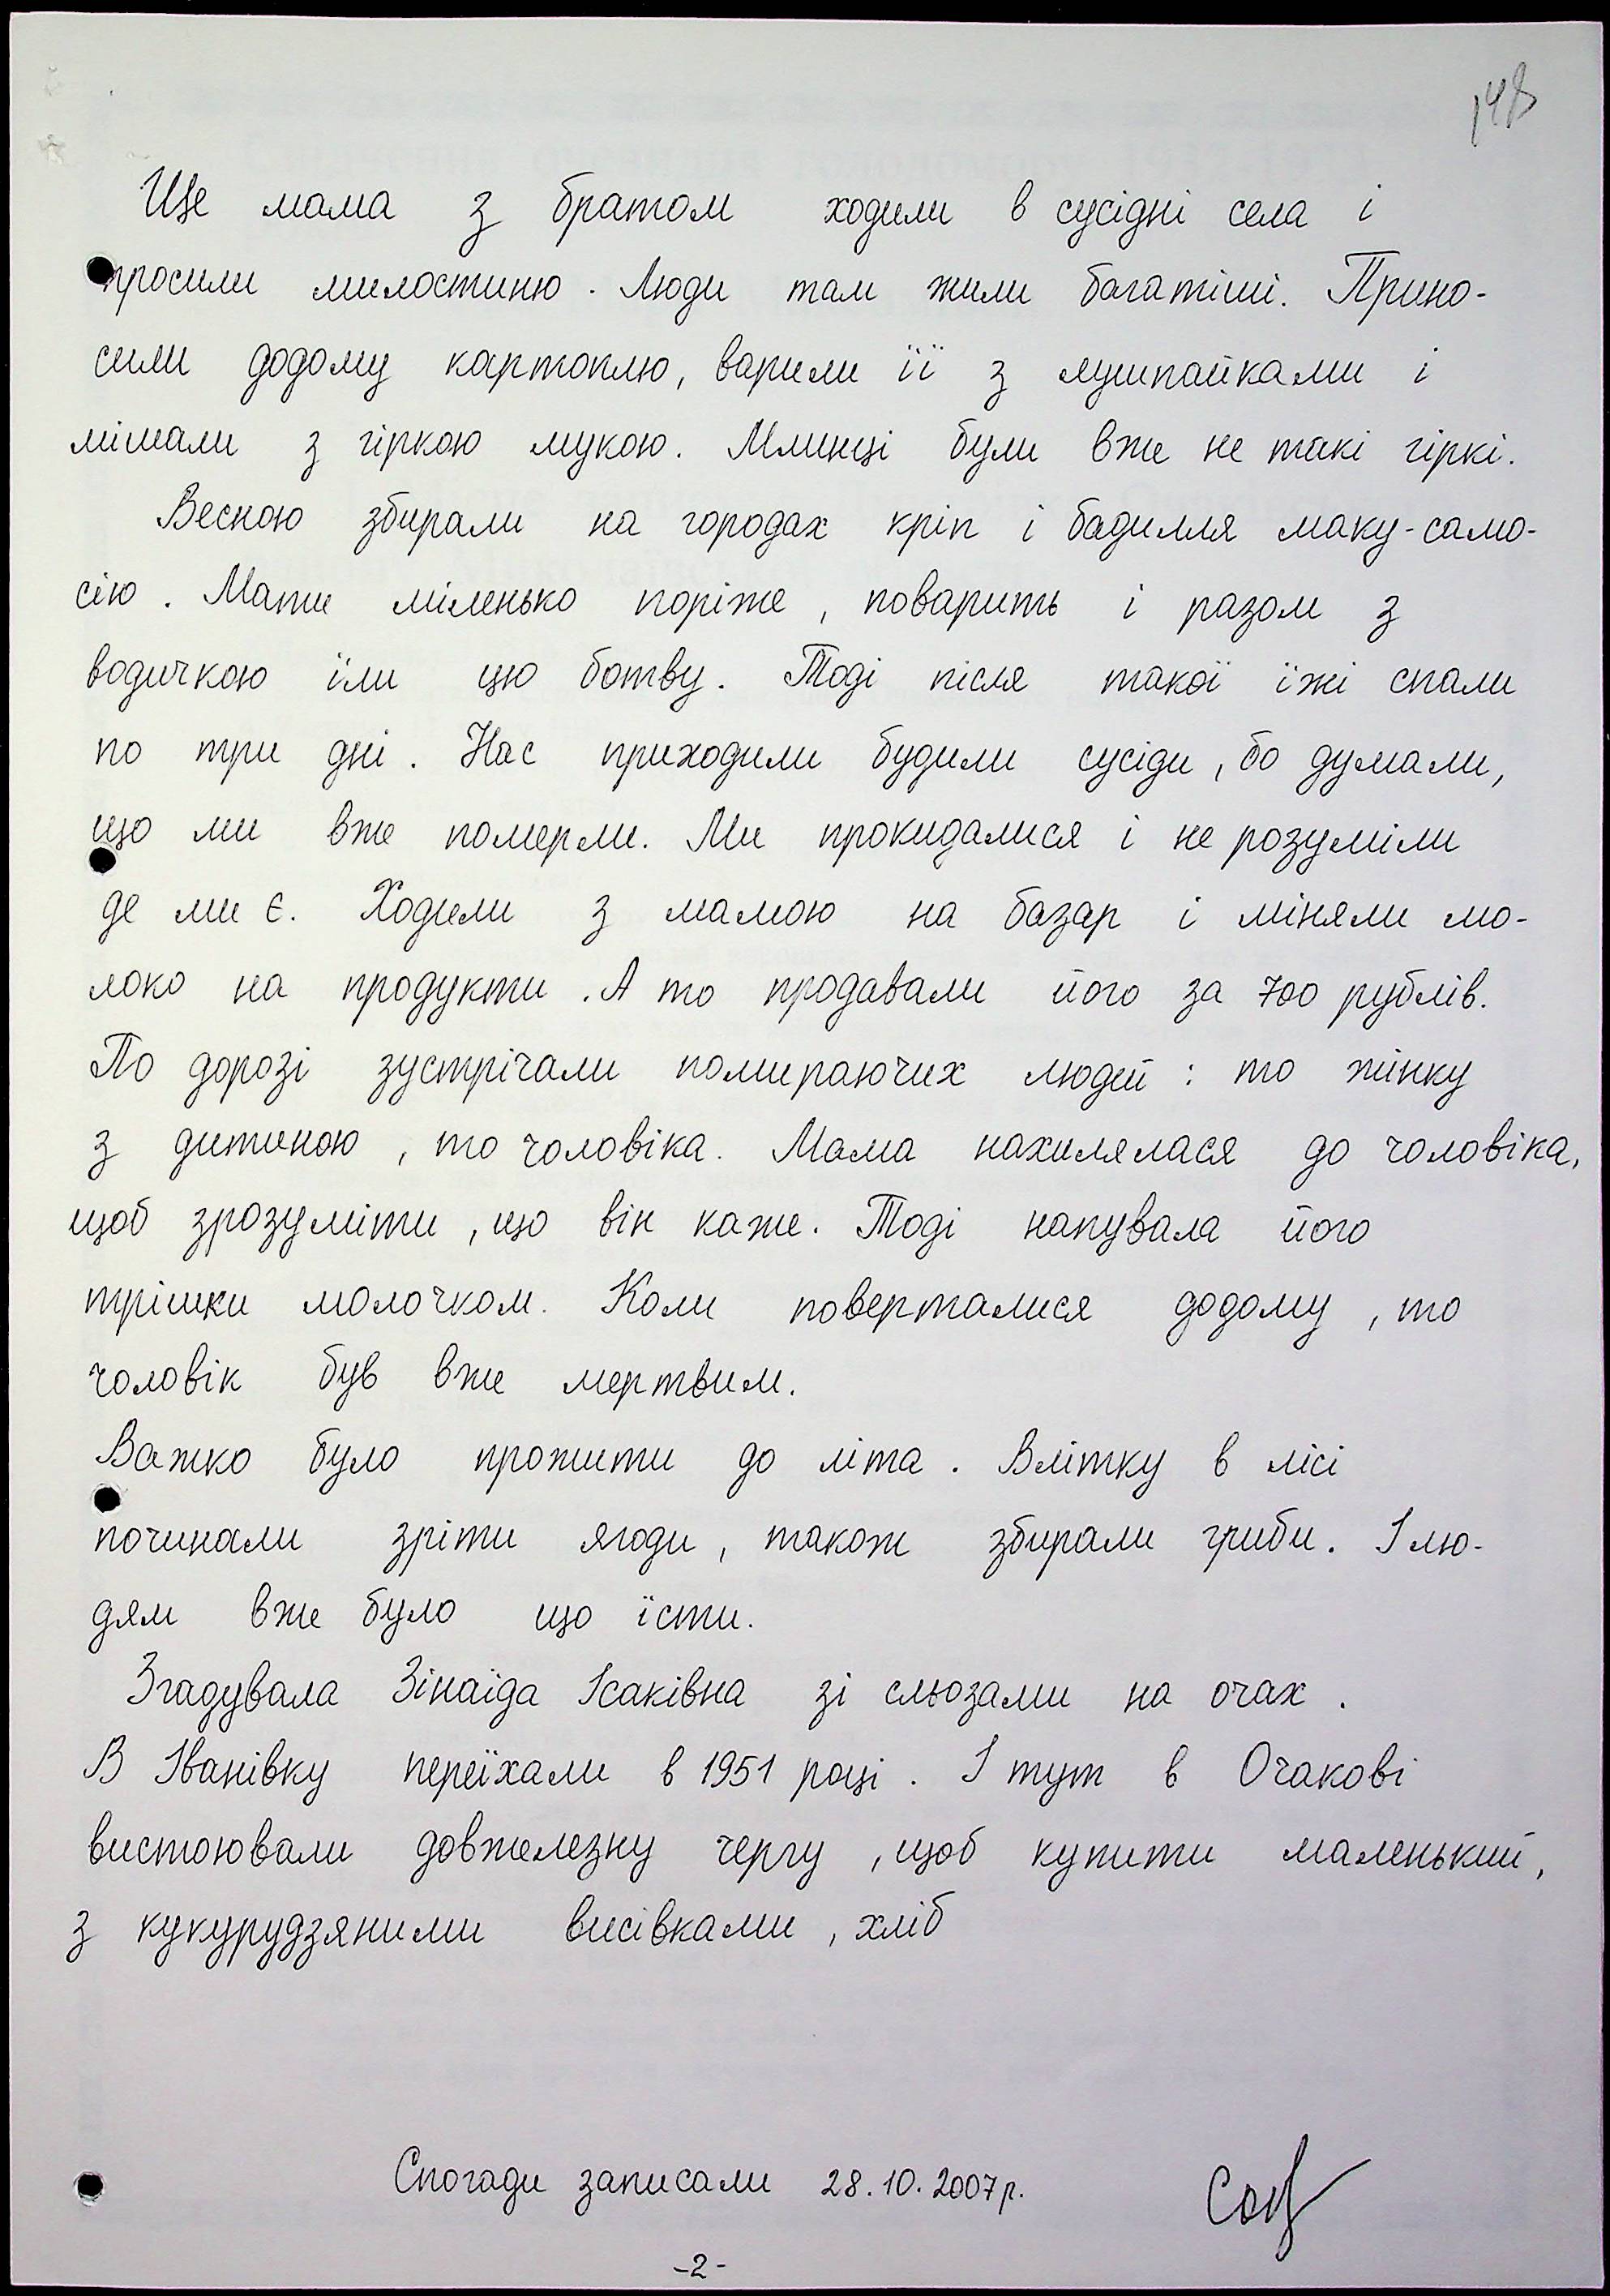 148
Ще мама з братом ходили в сусідні села і
просили милостиню. Люди там жили багатіші. Прино-
сили додому картоплю, варили її з лушпайками і
мішали з гіркою мукою. Млинці були вже не такі гіркі.
Весною збирали на городах кріп і бадилля маку-само-
сію. Мати міленько поріже, поварить і разом з
водичкою їли цю ботву. Тоді після такої їжі спали
по три дні. Нас приходили будили сусіди, бо думали,
що ми вже померли. Ми прокидалися і не розуміли
де ми є. Ходили з мамою на базар і міняли мо-
локо на продукти. А то продавали його за 700 рублів.
По дорозі зустрічали помираючих людей: то жінку
з дитиною, то чоловіка. Мама нахилялася до чоловіка,
щоб зрозуміти, що він каже. Тоді напувала його
трішки молочком. Коли поверталися додому, то
чоловік був вже мертвим.
Важко було прожити до літа. Влітку в лісі
починали зріти ягоди, також збирали гриби. І лю-
дям вже було що їсти.
Згадувала Зінаїда Ісаківна зі сльозами на очах.
В Іванівку переїхали в 1951 році. І тут в Очакові
вистоювали довжелезну чергу, щоб купити маленький,
з кукурудзяними висівками, хліб
Спогади записали 28.10.2007р.
-2-